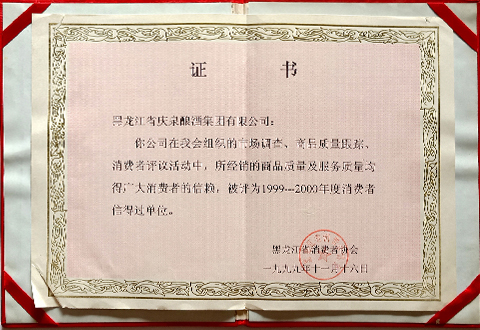 证 书
黑龙江省庆泉酿酒集团有限公司：
你公司在我会组织的市场调查、商品质量跟踪、
消费者评议活动中，所经销的商品质量及服务质量均
得广大消费者的信赖，被评为1999---2000年度消费者
信得过单位。
黑龙江省消费者协会
一九九九年十一月十六日